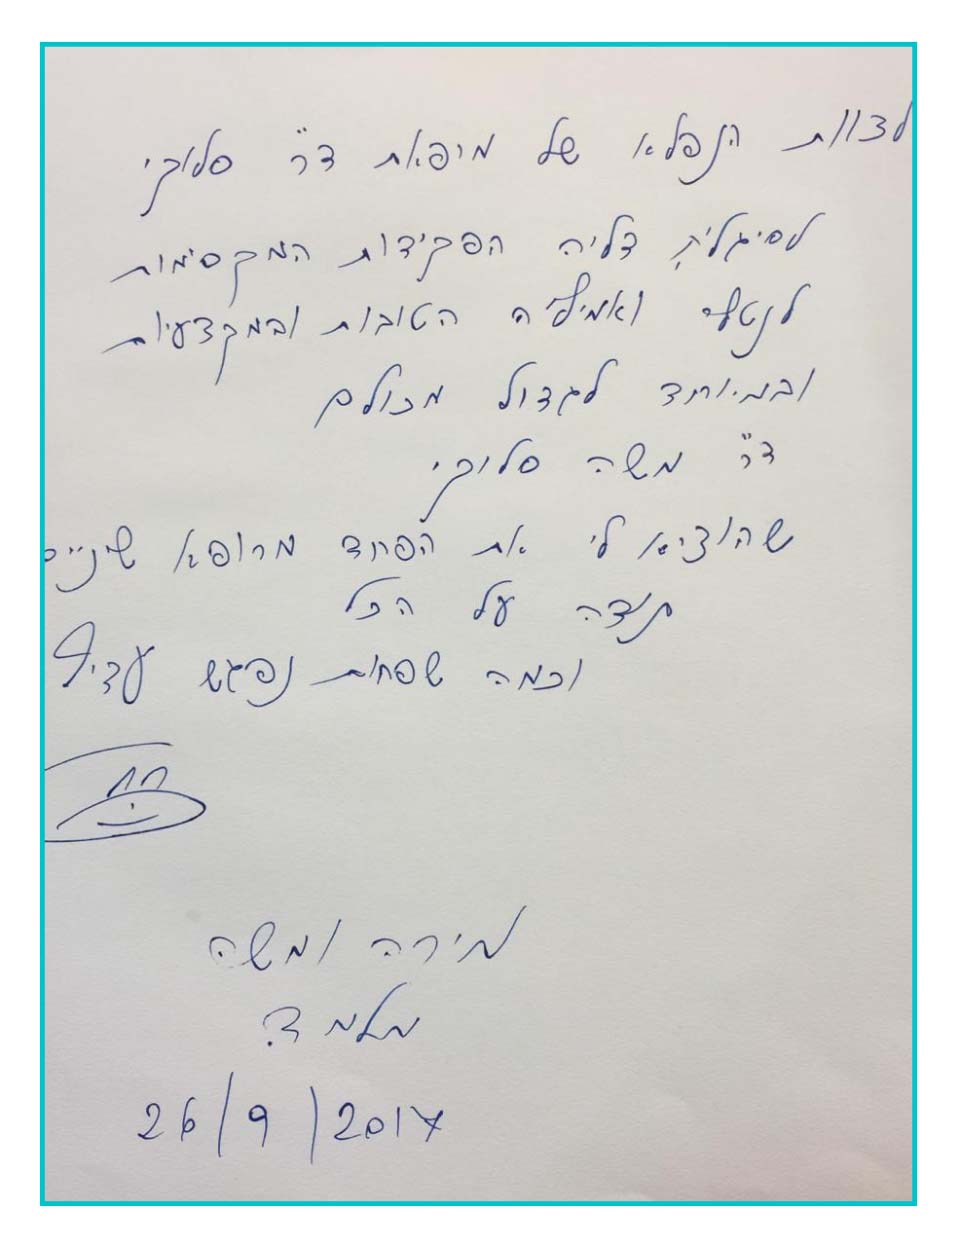 לצוות הנפלא של מרפאת ד"ר סלוקי
לסיגלית דליה הפקידות המקסימות
ואמיליה הטובות ובמקצעיות
ובמיוחד לגדול מכולם
ד"ר משה סלוקי
שהוציא לי את הפחד מרופא שיניים
תודה על הכל
וכמה שפחות נפגש עדיף
מירה ומשה
מלמד
26/9/2017